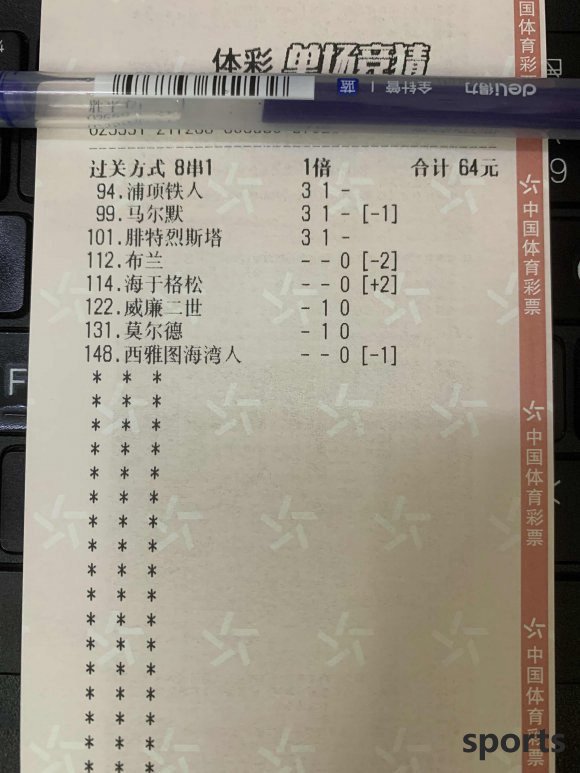 体彩 单场竞猜
deli得力 全针管 | 蓝
过关方式 8串1 1倍 合计 64元
94.浦项铁人 3 1 -
99.马尔默 3 1 - [-1]
101.腓特烈斯塔 3 1 -
112.布兰 - - 0 [-2]
114.海于格松 - - 0 [+2]
122.威廉二世 - 1 0
131.莫尔德 - 1 0
148.西雅图海湾人 - - 0 [-1]
* * *
* * *
* * *
* * *
* * *
* * *
* * *
* * *
* * *
* * *
* * *
* * *
* * *
* * *
* * *
* * *
* * *
中国体育彩
中国体育彩票
中国体育彩票
中国体育彩票
sports
F
9